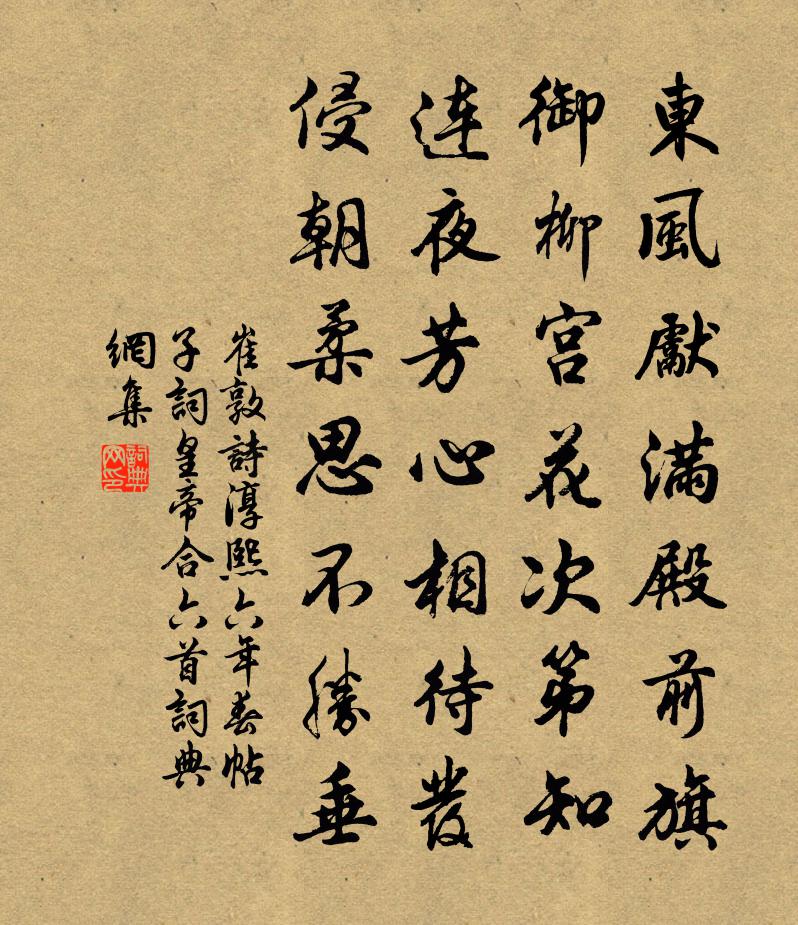 東風獻滿殿前旗
御柳宮花次第知
連夜芳心相待發
侵朝柔思不勝垂
崔敦詩淳熙六年春帖
子詞皇帝合六首詞典
網集
詞典网印